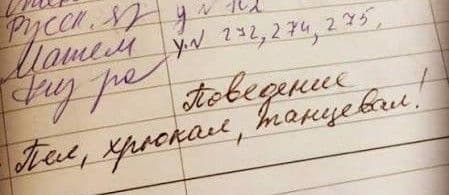 Русск. яз у № 162
Матем у.№ 272, 274, 275,
Физ ра
Поведение
Пел, хрюкал, танцевал!